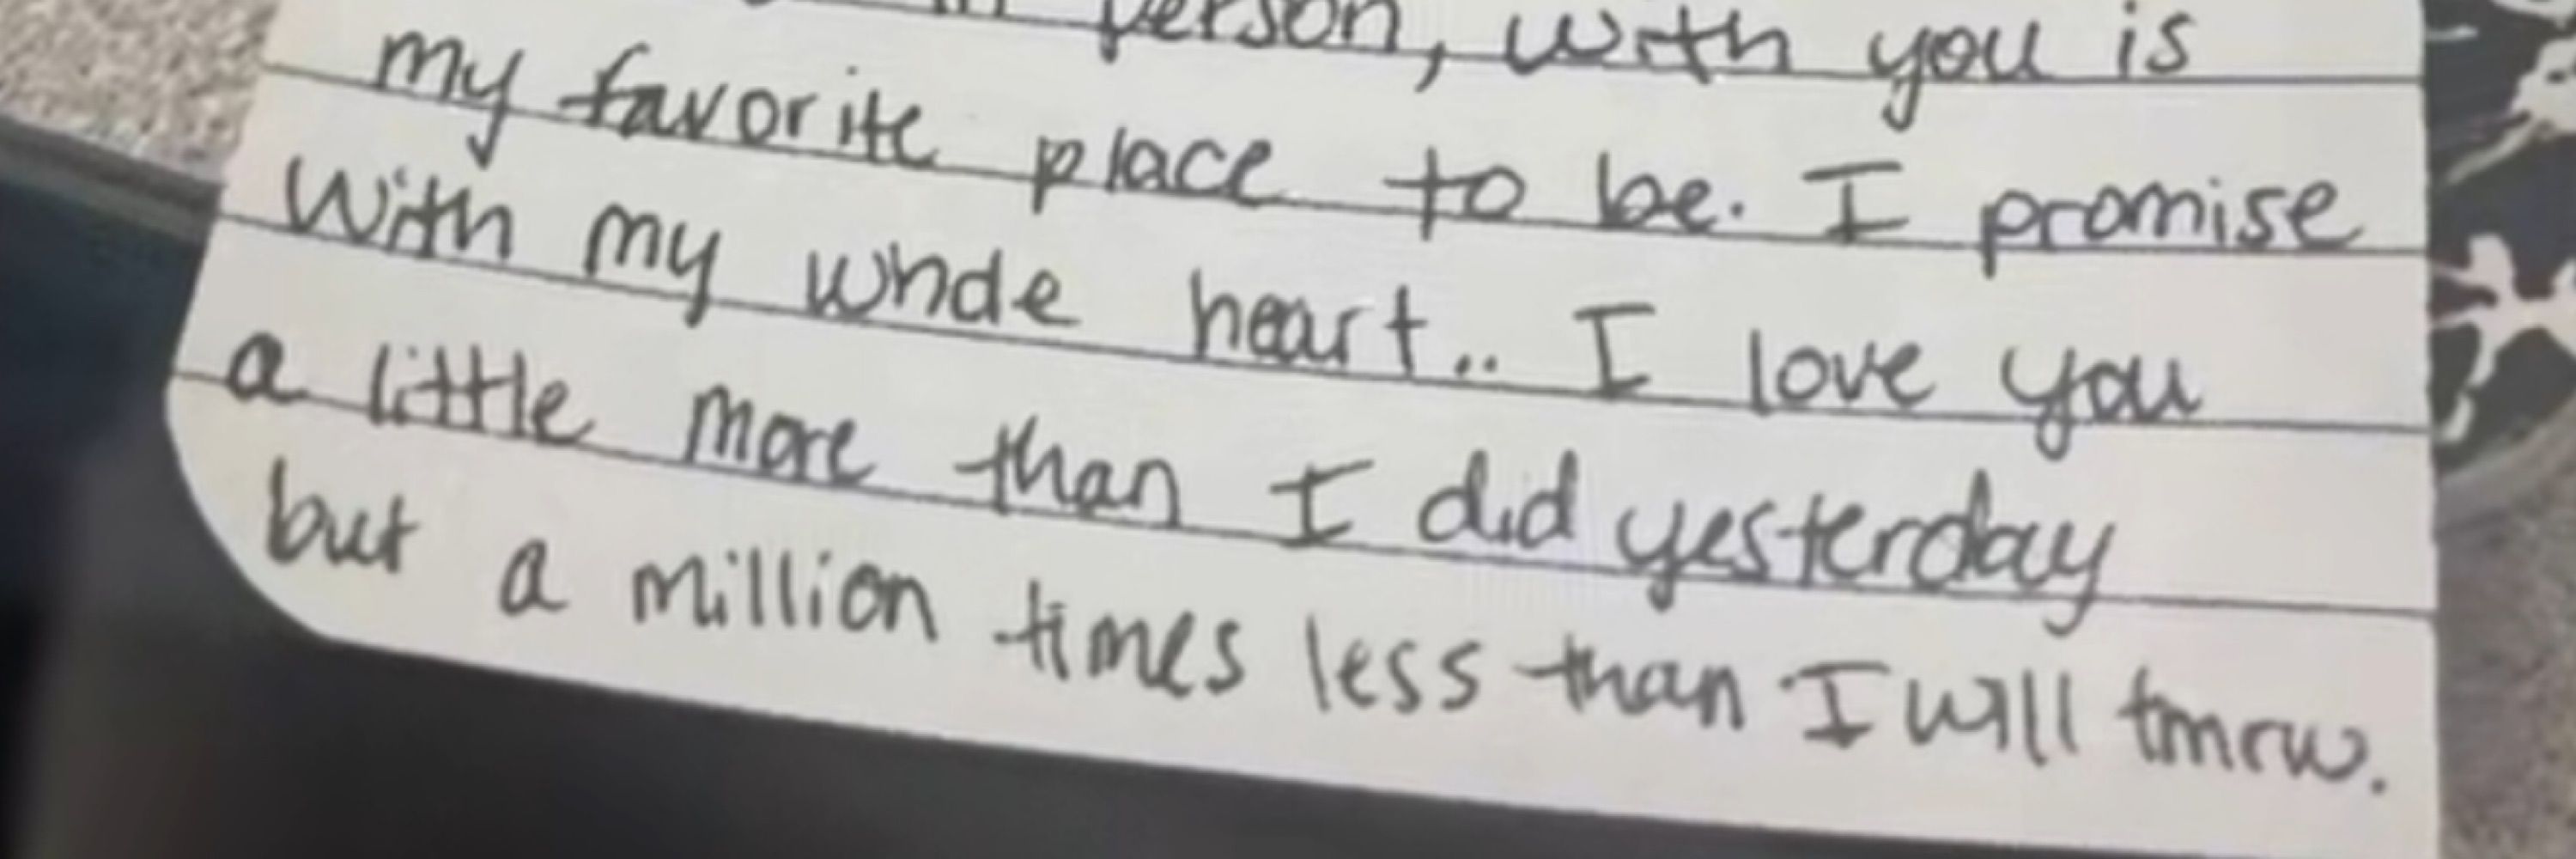 in person, with you is
my favorite place to be. I promise
with my whole heart.. I love you
a little more than I did yesterday
but a million times less than I will tmrw.